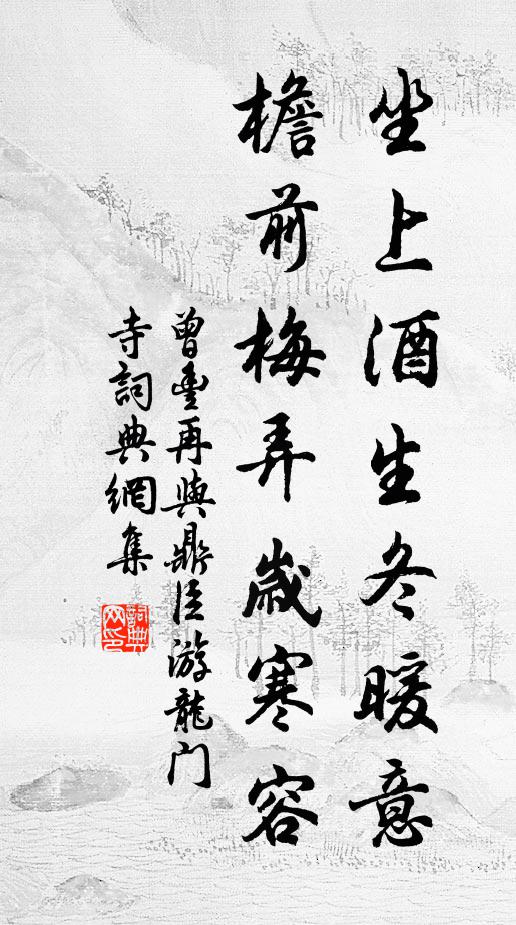 坐上酒生冬暖意
檐前梅弄歲寒容
曾豊再與鼎臣游龍门
寺詞典網集
詞典网印